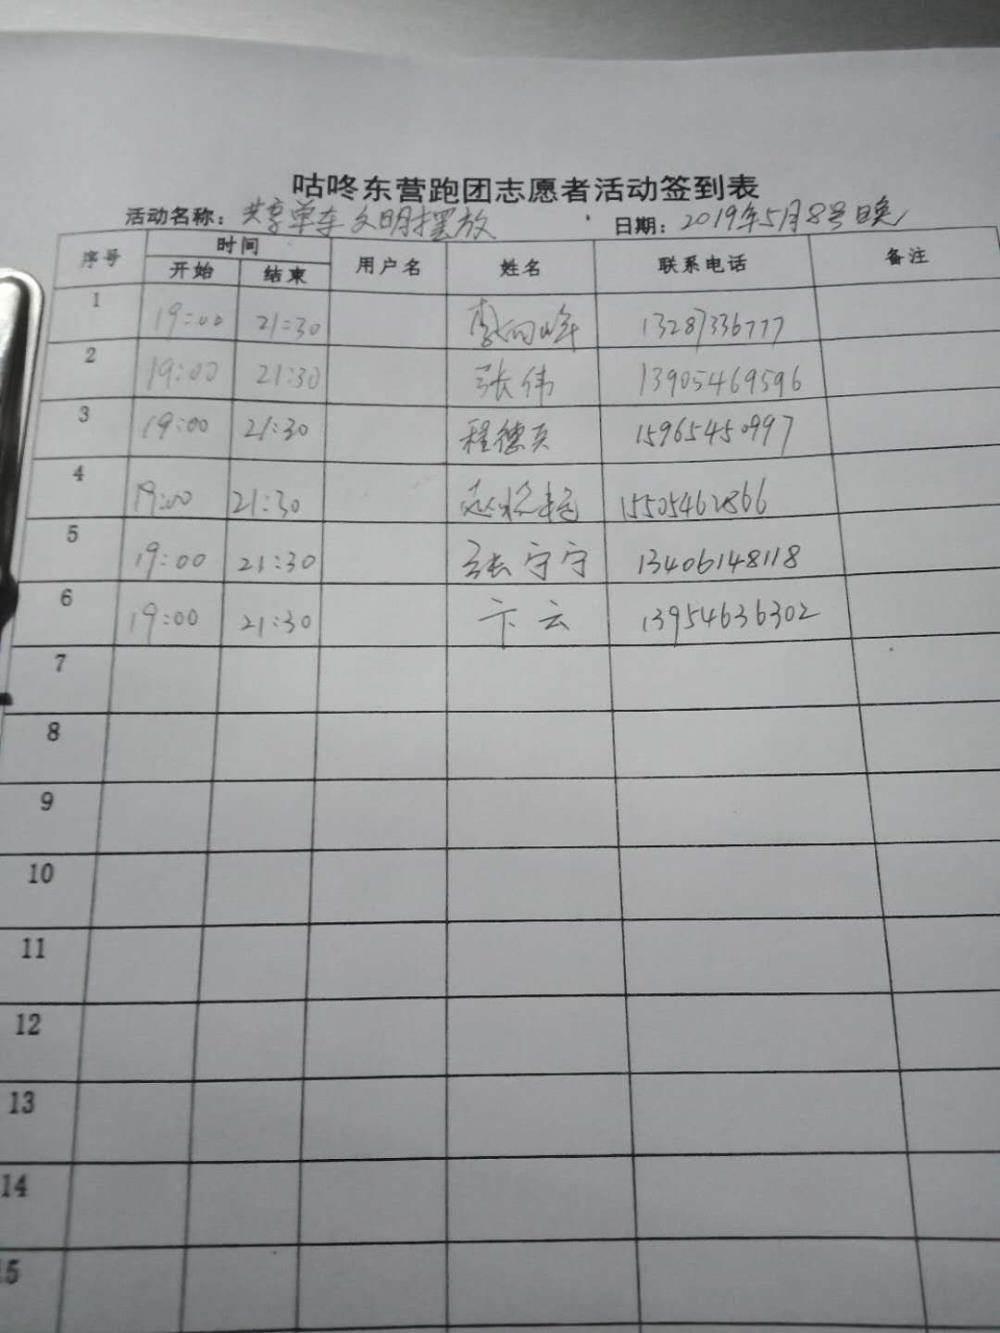 咕咚东营跑团志愿者活动签到表
活动名称：共享单车文明摆放 日期：2019年5月8号晚
序号 时间 用户名 姓名 联系电话 备注
开始 结束
1 19:00 21:30 13287336777
2 19:00 21:30 张伟 13905469596
3 19:00 21:30 程德 15965450997
4 19:00 21:30 15505462866
5 19:00 21:30 张宁宁 13406148118
6 19:00 21:30 卞云 13954636302
7
8
9
10
11
12
13
14
15